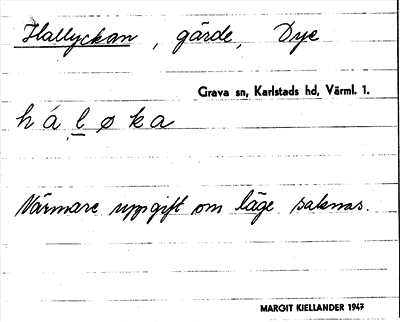 Hallyckan, gärde, Dye
Grava sn, Karlstads hd, Värml. l.
h á l ø k a
Närmare uppgift om läge saknas.
MARGIT KIELLANDER 1947